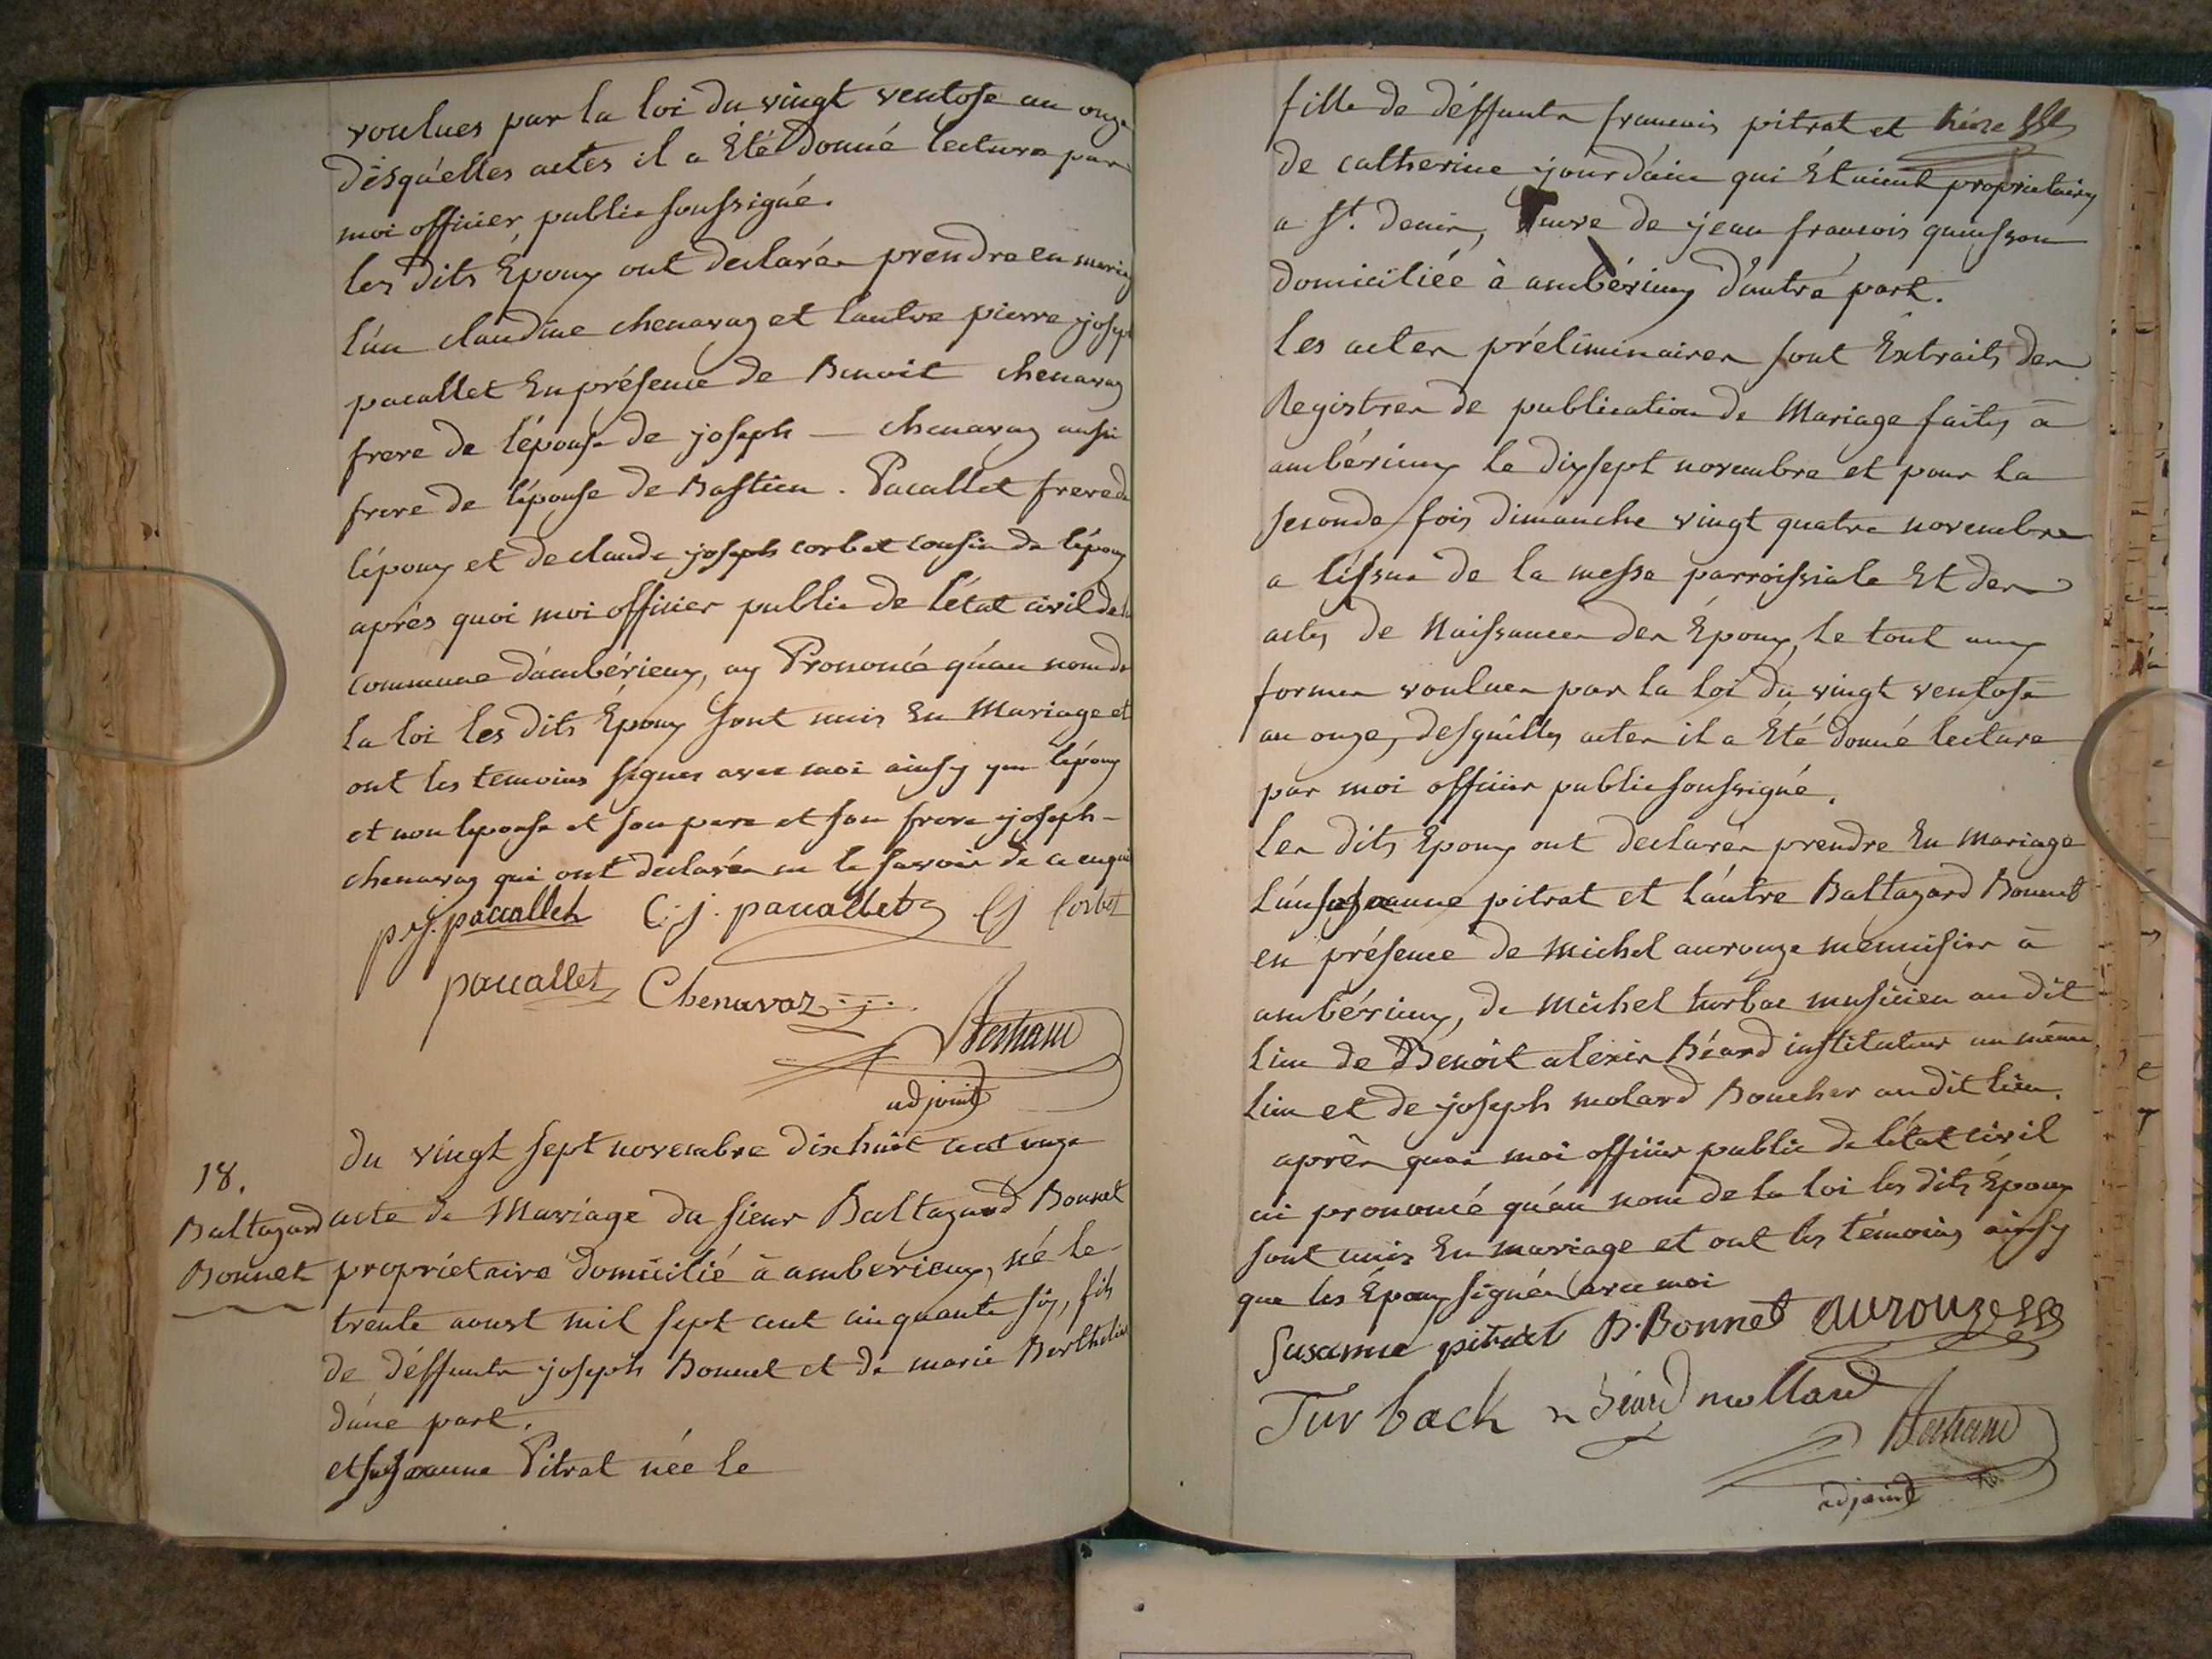 voulues par la loi du vingt ventose an onze
désquélles actes il a Eté donné lecture par
moi officier public soussigné.
les dits Epoux ont declarés prendre en mariage
l'un claudine chenavaz et lautre pierre joseph
pacallet En présence de Benoit chenavaz
frere de lépouse de joseph — chenavaz aussi
frere de lépouse de Bastien . Pacallet frere de
lépoux et de claude joseph corbet cousin de lépoux
aprés quoi moi officier public de létat civil de la
commune dámbérieux, ay Prononcé qúau nom de
la loi les dits Epoux sont unis En Mariage et
ont les temoins signés avec moi ainsy que lépoux
et non lepouse et son pere et son frere joseph -
chenavaz qui ont declarés ne le savoir de ce enquis
p. j. pacallet C. j. pacallet Cj Corbet
pacallet Chenavaz
Bertrand
adjoint
18.
Baltazard
Bonnet
du vingt sept novembre dix huit cent onze
acte de Mariage du sieur Baltazard Bonnet
propriétaire domicilié à ambérieux, né le
trente aoust mil sept cent cinquante six, fils
de déffunts joseph Bonnet et de marie Berthelier
dúne part.
et susanne Pitrat née le
fille de déffunts francois pitrat et
de catherine jourdáin qui Etaient propriétaires
a St. denis, veuve de jean francois quinsson
domiciliée à ambérieux d'autré part.
les actes préliminaires sont Extraits des
Registres de publication de Mariage faites à
ambérieux le dixsept novembre et pour la
seconde fois dimanche vingt quatre novembre
a lissue de la messe parroissiale Et des
actes de Naissances des Epoux, le tout aux
formes voulues par la loi du vingt ventose
an onze, desquélles actes il a Eté donné lecture
par moi officier public soussigné.
les dits Epoux ont declarés prendre En mariage
l'un susanne pitrat et láutre Baltazard Bonnet
en présence de michel aurouze menuisier à
ambérieux, de michel turbac musicien au dit
lieu de Benoit alexis Béard instituteur au même
lieu et de joseph molard Boucher au dit lieu.
aprês quoi moi officier public de létat civil
ai prononcé quáu nom de la loi les dits Epoux
sont unis En mariage et ont les témoins ainsy
que les Epoux signés avec moi
Susanne pitrat B. Bonnet aurouze
Turback Béard mollard
Bertrand
adjoint